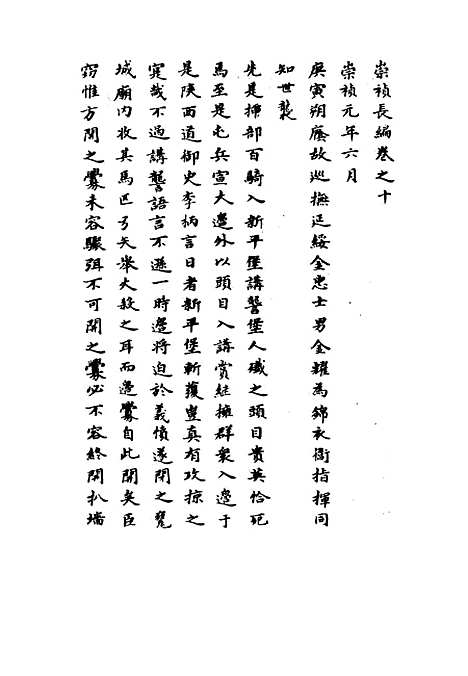 崇禎長編卷之十
崇禎元年六月
庚寅朔廕故巡撫延綏金忠士男金耀為錦衣衛指揮同
知世襲
先是插部百騎入新平堡講讐堡人殲之頭目貴英恰死
馬至是屯兵宣大邊外以頭目入講賞繼擁群衆入邊于
是陝西道御史李柄言日者新平堡斬獲豈真有攻掠之
寔哉不過講讐語言不遜一時邊將迫於義憤遂閉之甕
城廟内收其馬匹弓矢舉火殺之耳而邊釁自此開矣臣
竊惟方開之釁未容驟弭不可開之釁必不容終開扒墻